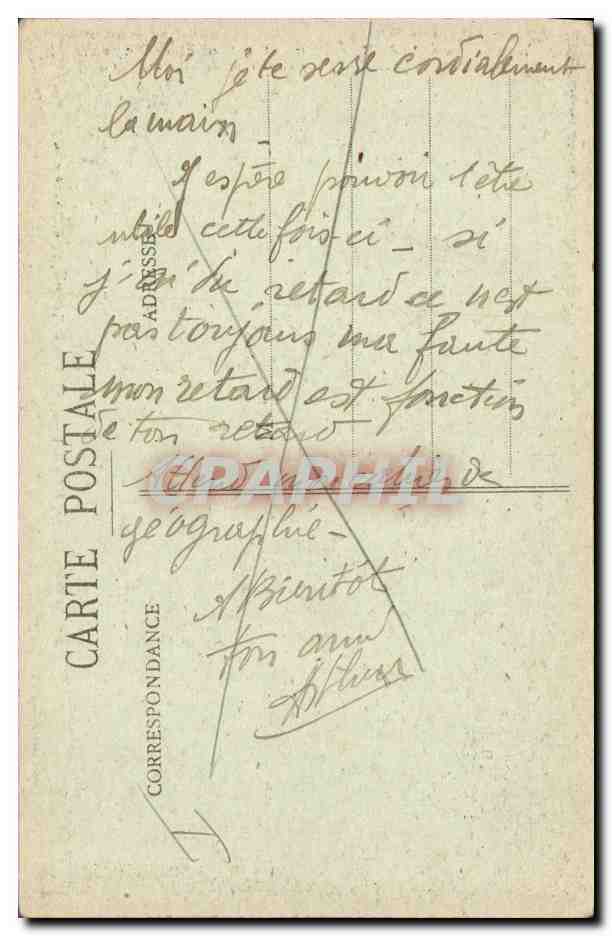 Moi je te serre cordialement
la main
J'espère pouvoir t'être
utile cette fois-ci - si
j'ai du retard ce n'est
pas toujours ma faute
mon retard est fonction
de ton retard
de
géographie -
A Bientôt
ton ami
Arthur
CARTE POSTALE
ADRESSE
CORRESPONDANCE
CPARHIL